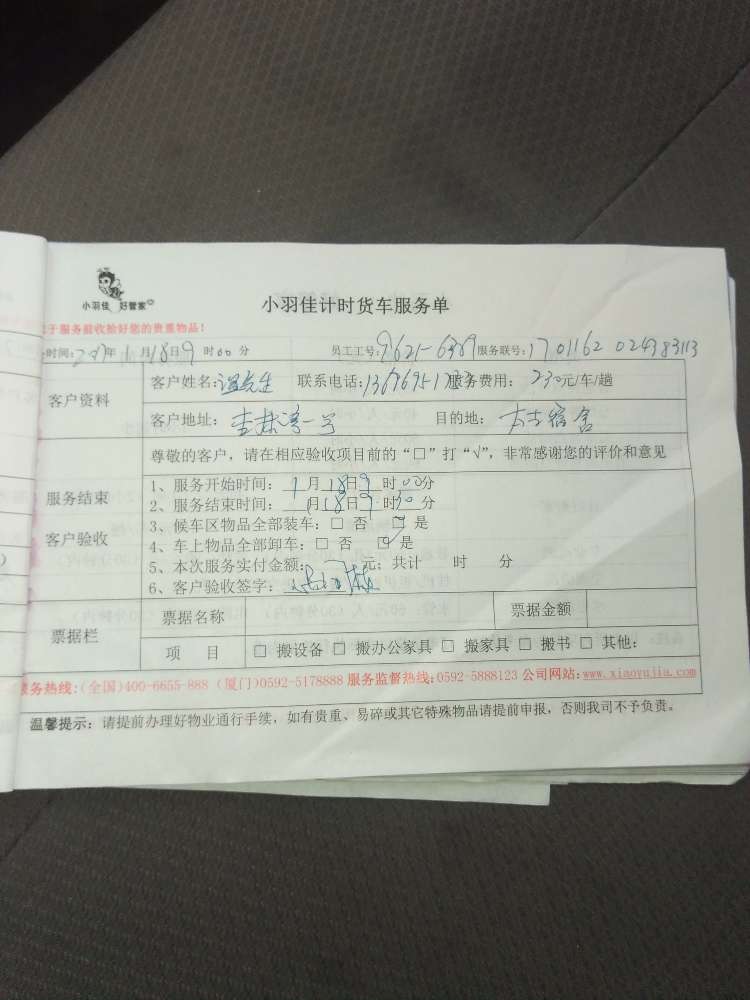 小羽佳 好管家
小羽佳计时货车服务单
于服务前收捡好您的贵重物品!
时间:2017年1月18日9时00分 员工工号:9621-6389 服务联号:1701162 024383113
客户资料
客户姓名:温先生 联系电话: 服务费用:230元/车/趟
客户地址:杏林湾一号 目的地:本士宿舍
尊敬的客户,请在相应验收项目前的“□”打“√”,非常感谢您的评价和意见
服务结束
客户验收
1、服务开始时间:1月18日9时00分
2、服务结束时间:1月18日9时30分
3、候车区物品全部装车:□ 否 □ 是
4、车上物品全部卸车:□ 否 ☑ 是
5、本次服务实付金额: 元;共计 时 分
6、客户验收签字:
票据栏
票据名称 票据金额
项 目 □ 搬设备 □ 搬办公家具 □ 搬家具 □ 搬书 □ 其他:
服务热线:(全国)400-6655-888 (厦门)0592-5178888 服务监督热线:0592-5888123 公司网站:www.xiaoyujia.com
温馨提示:请提前办理好物业通行手续,如有贵重、易碎或其它特殊物品请提前申报,否则我司不予负责。